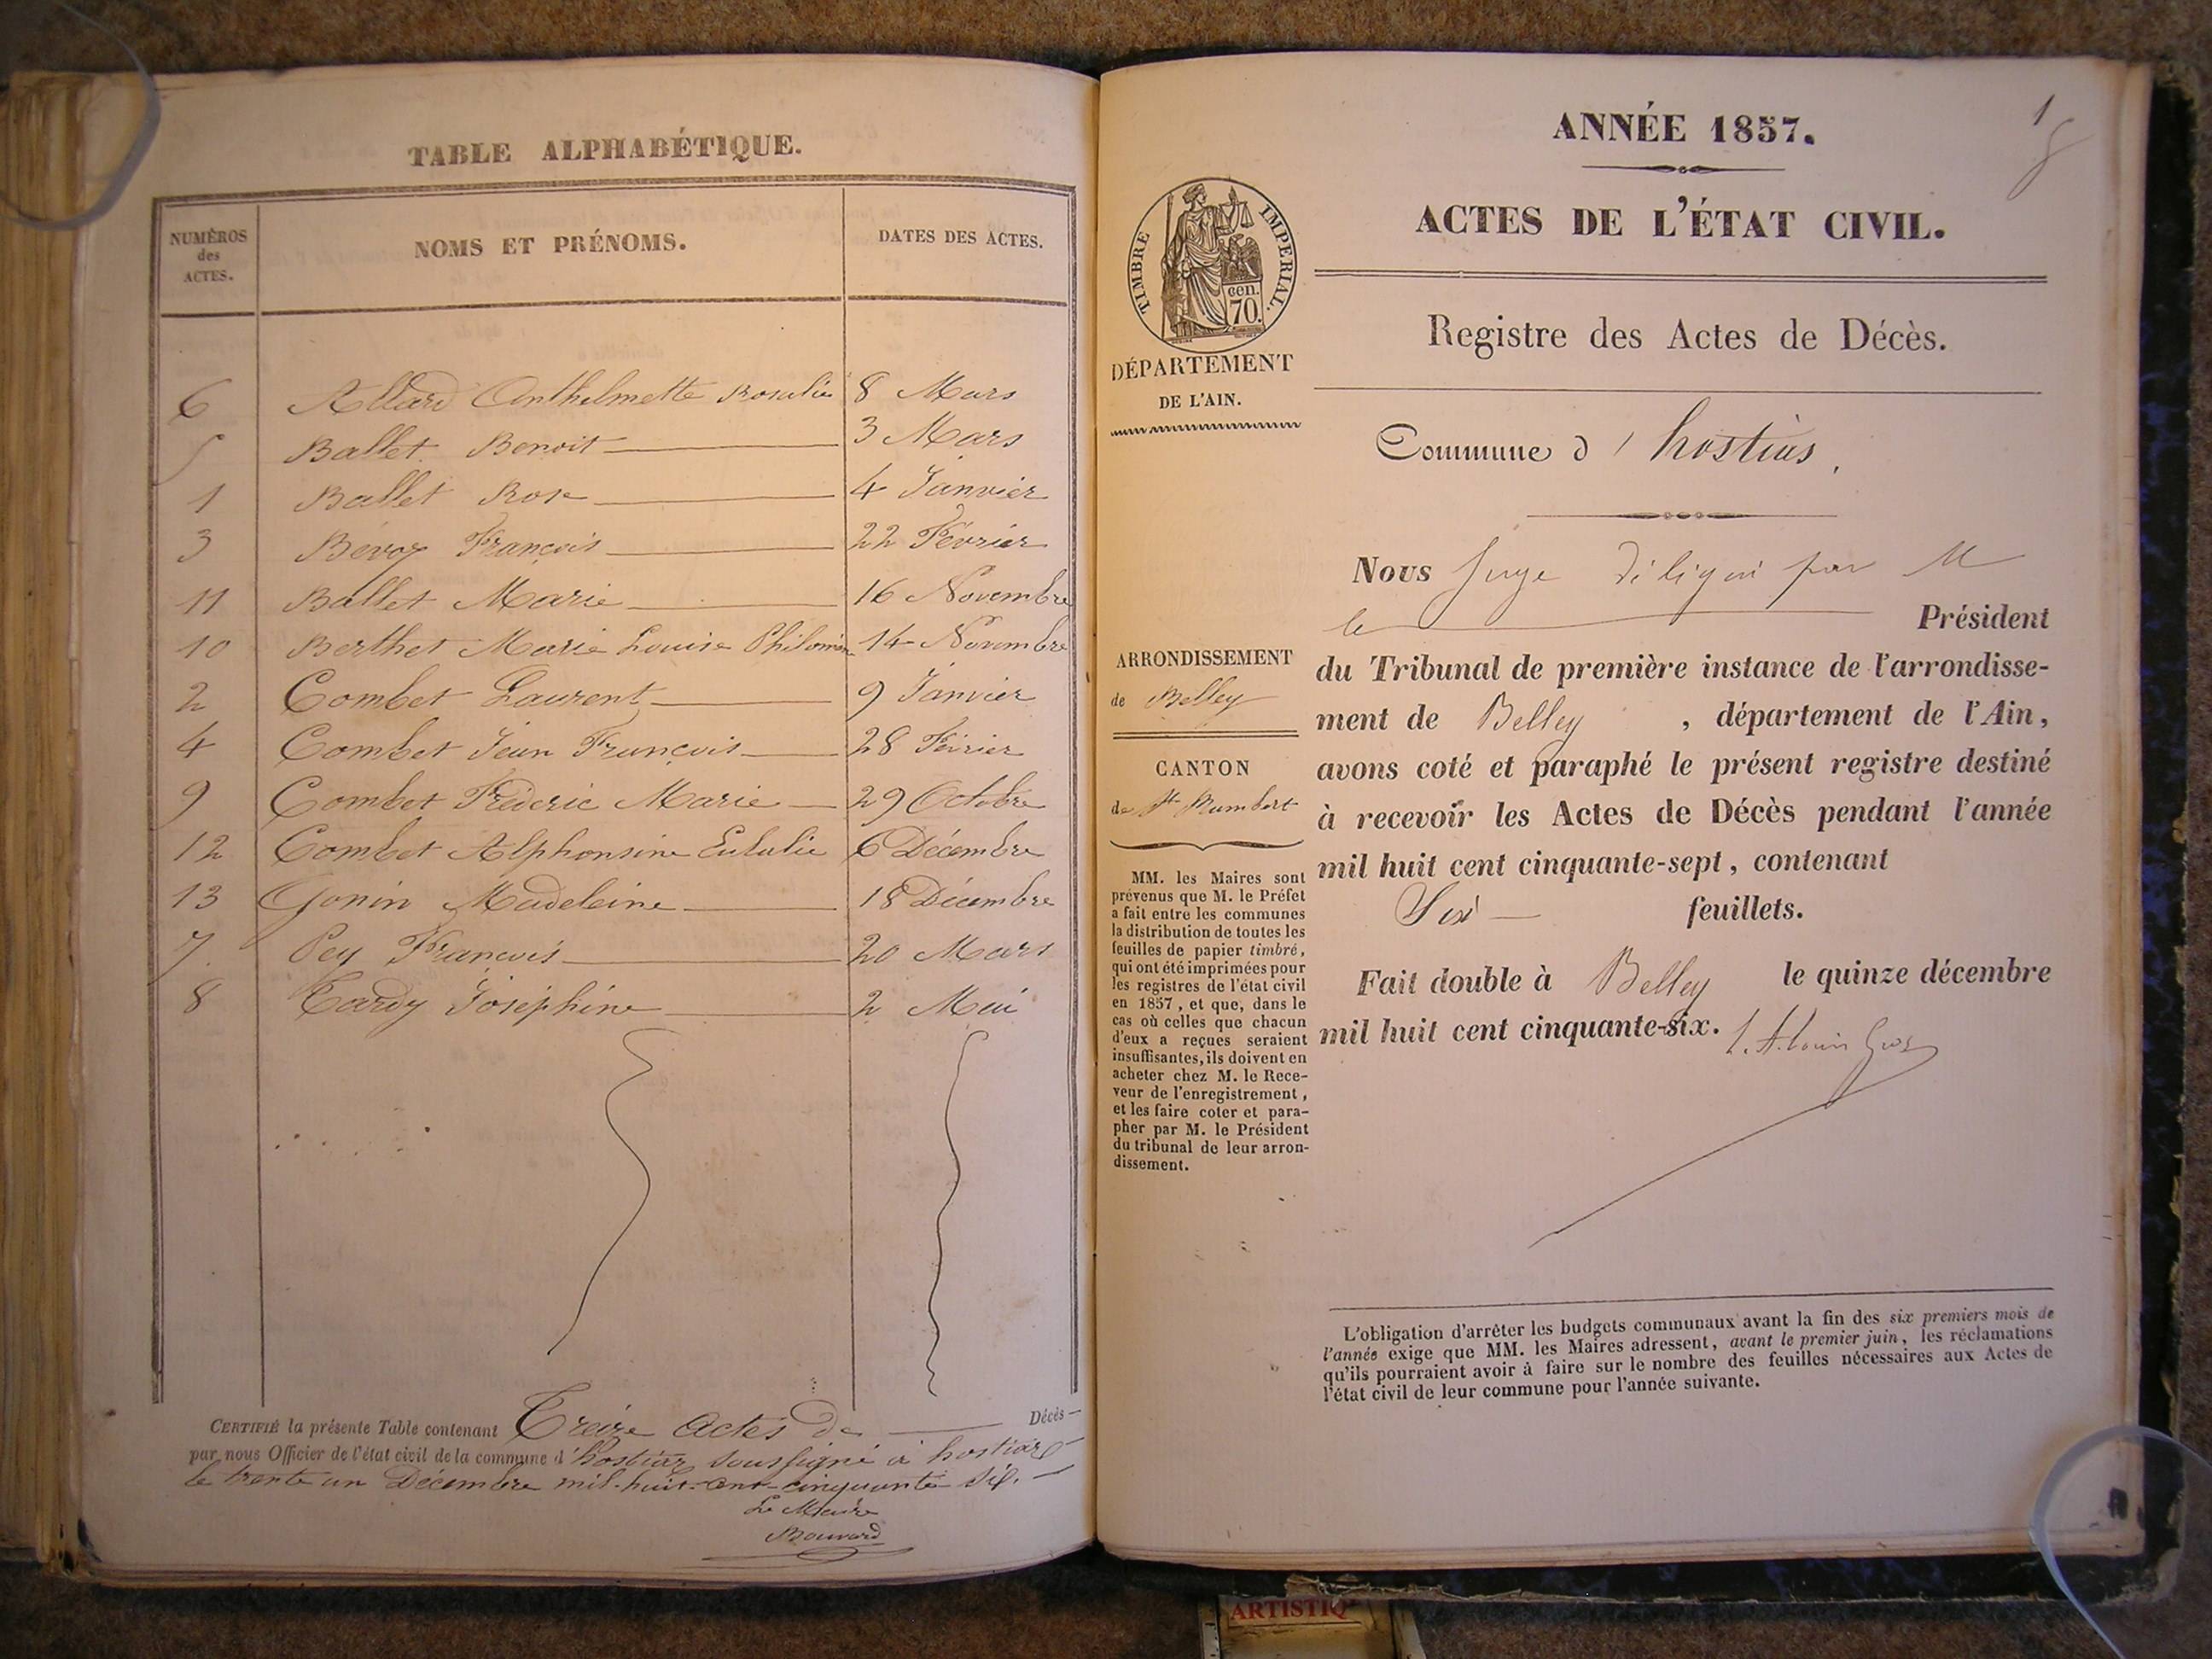 TABLE ALPHABÉTIQUE.
NUMÉROS des ACTES.
NOMS ET PRÉNOMS.
DATES DES ACTES.
6 Allard Anthelmette Rosalie 8 Mars
5 Ballet Benoit 3 Mars
1 Ballet Rose 4 Janvier
3 Bévoz François 22 Février
11 Ballet Marie 16 Novembre
10 Berthet Marie Louise Philomène 14 Novembre
2 Combet Laurent 9 Janvier
4 Combet Jean François 28 Février
9 Combet Fréderic Marie 29 Octobre
12 Combet Alphonsine Eulalie 6 Décembre
13 Gonin Madeleine 18 Décembre
7. Pey François 20 Mars
8 Tardy Joséphine 2 Mai
CERTIFIÉ la présente Table contenant Treize Actes de Décès
par nous Officier de l'état civil de la commune d'hostiaz soussigné à hostiaz
le trente un Décembre mil-huit-cent-cinquante six.
Le Maire
Bouvard
1
ANNÉE 1857.
ACTES DE L'ÉTAT CIVIL.
TIMBRE IMPERIAL.
cen.
70.
DÉPARTEMENT
DE L'AIN.
Registre des Actes de Décès.
Commune d'hostias,
Nous Juge Délégué par M
le Président
du Tribunal de première instance de l'arrondisse-
ment de Belley, département de l'Ain,
avons coté et paraphé le présent registre destiné
à recevoir les Actes de Décès pendant l'année
mil huit cent cinquante-sept, contenant
Six feuillets.
Fait double à Belley le quinze décembre
mil huit cent cinquante-six.
ARRONDISSEMENT
de Belley
CANTON
de St Rambert
MM. les Maires sont
prévenus que M. le Préfet
a fait entre les communes
la distribution de toutes les
feuilles de papier timbré,
qui ont été imprimées pour
les registres de l'état civil
en 1857, et que, dans le
cas où celles que chacun
d'eux a reçues seraient
insuffisantes, ils doivent en
acheter chez M. le Rece-
veur de l'enregistrement,
et les faire coter et para-
pher par M. le Président
du tribunal de leur arron-
dissement.
L'obligation d'arrêter les budgets communaux avant la fin des six premiers mois de
l'année exige que MM. les Maires adressent, avant le premier juin, les réclamations
qu'ils pourraient avoir à faire sur le nombre des feuilles nécessaires aux Actes de
l'état civil de leur commune pour l'année suivante.
ARTISTIQ